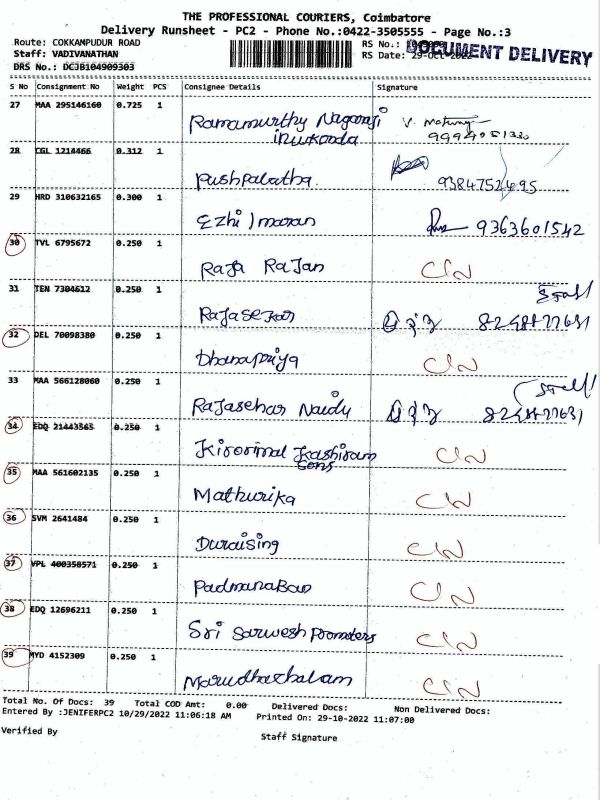 THE PROFESSIONAL COURIERS, Coimbatore
Delivery Runsheet - PC2 - Phone No.:0422-3505555 - Page No.:3
Route: COKKAMPUDUR ROAD
RS No.:
DOCUMENT DELIVERY
Staff: VADIVANATHAN
RS Date: 29-Oct-2022
DRS No.: DCJB104909303
S No Consignment No Weight PCS Consignee Details Signature
27 MAA 295146160 0.725 1
Ramamurthy Nagaraji
28 CGL 1214466 0.312 1
pushpalatha 9384752495
29 HRD 310632165 0.300 1
Ezhil maran 9363601542
30 TVL 6795672 0.250 1
Raja Rajan C/N
31 TEN 7304612 0.250 1
Rajasekar
32 DEL 70098380 0.250 1
Dhanapriya C/N
33 MAA 566128060 0.250 1
Rajasehar Naidu
34 EDQ 21443565 0.250 1
Kirorimal Kashiram C/N
Sons
35 MAA 561602135 0.250 1
Mathurika C/N
36 SVM 2641484 0.250 1
Duraising C/N
37 VPL 400350571 0.250 1
Padmanaban C/N
38 EDQ 12696211 0.250 1
Sri Sarwesh Promoters C/N
39 MYD 4152309 0.250 1
Marudhachalam C/N
Total No. Of Docs: 39 Total COD Amt: 0.00 Delivered Docs: Non Delivered Docs:
Entered By :JENIFERPC2 10/29/2022 11:06:18 AM Printed On: 29-10-2022 11:07:00
Verified By
Staff Signature